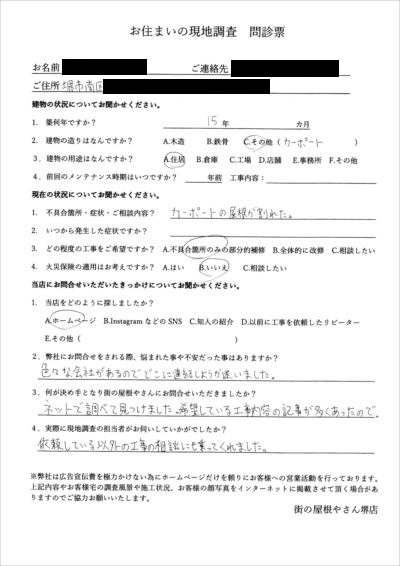 お住まいの現地調査　問診票
お名前　ご連絡先
ご住所 堺市南区
建物の状況についてお聞かせください。
1. 築何年ですか？　15 年　カ月
2. 建物の造りはなんですか？　A.木造　B.鉄骨　C.その他（カーポート　）
3. 建物の用途はなんですか？　A.住居　B.倉庫　C.工場　D.店舗　E.事務所　F.その他
4. 前回のメンテナンス時期はいつですか？　年前　工事内容：
現在の状況についてお聞かせください。
1. 不具合箇所・症状・ご相談内容？　カーポートの屋根が割れた。
2. いつから発生した症状ですか？
3. どの程度の工事をご希望ですか？　A.不具合箇所のみの部分的補修　B.全体的に改修　C.相談したい
4. 火災保険の適用はお考えですか？　A.はい　B.いいえ　C.相談したい
当店にお問合せいただいたきっかけについてお聞かせください。
1. 当店をどのように探しましたか？
A.ホームページ　B.Instagram などの SNS　C.知人の紹介　D.以前に工事を依頼したリピーター
E.その他（　）
2. 弊社にお問合せをされる際、悩まれた事や不安だった事はありますか？
色々な会社があるのでどこに連絡しようか迷いました。
3. 何が決め手となり街の屋根やさんにお問合せいただきましたか？
ネットで調べて見つけました。希望している工事内容の記事が多くあったので。
4. 実際に現地調査の担当者がお伺いしていかがでしたか？
依頼している以外の工事の相談にも乗ってくれました。
※弊社は広告宣伝費を極力かけない為にホームページだけを頼りにお客様への営業活動を行っております。
上記内容やお客様宅の調査風景や施工状況、お客様の顔写真をインターネットに掲載させて頂く場合があ
りますのでご協力お願いいたします。
街の屋根やさん堺店